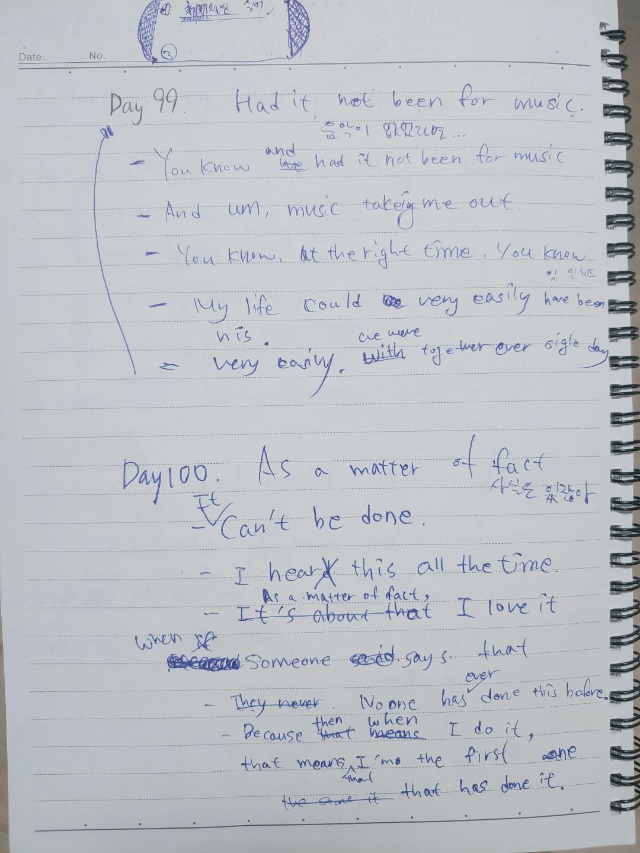 Date. No.
Day 99. Had it not been for music.
음악이 없었다면...
and
- You know we had it not been for music
- And um, music takeing me out
- You know, at the right time, You know
- My life could be very easily have been
his.
we were
= very easily. with together ever sigle day
Day 100. As a matter of fact
사실은 있잖아
It
- Can't be done.
- I hear this all the time.
As a matter of fact,
- It's about that I love it
When if
Someone said says that
ever
- They never. No one has done this before.
then when
- Because that means I do it,
that means I'm the first one
that
that has done it.